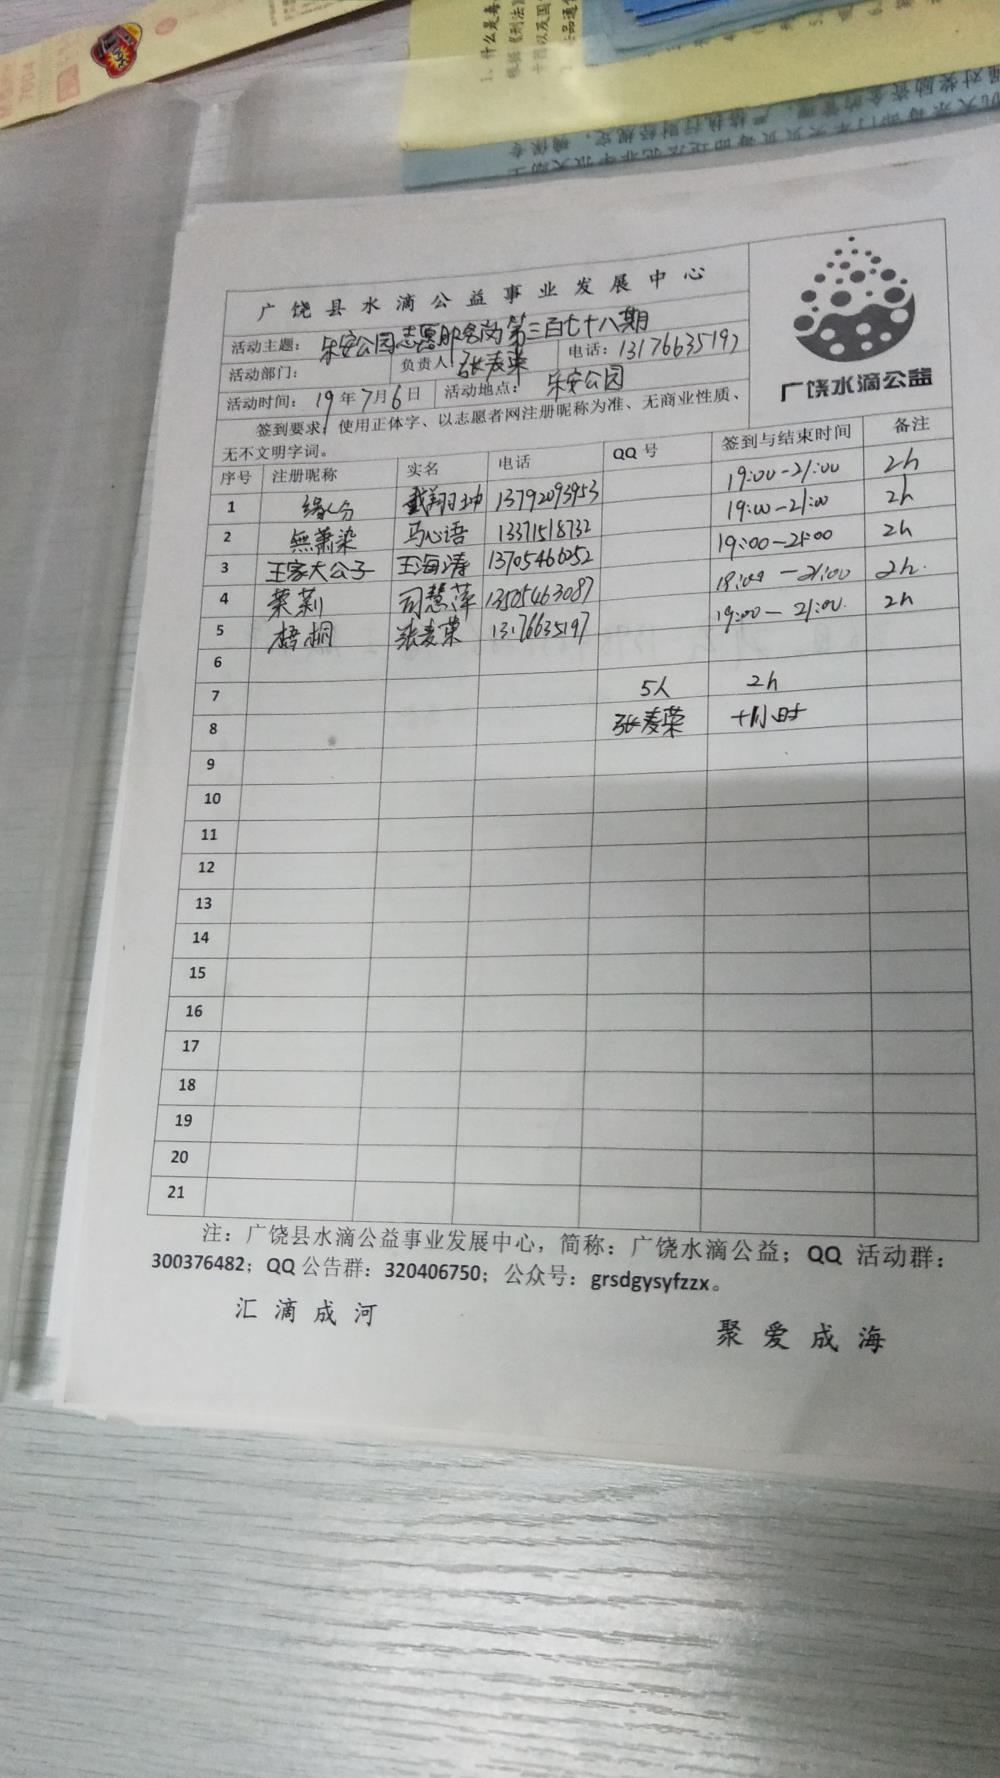 1、什么是毒
根据《刑法》
十南以及国
广饶县水滴公益事业发展中心
活动主题： 乐安公园志愿服务岗第三百七十八期
活动部门： 负责人 张麦荣 电话：13176635197
活动时间：19年7月6日 活动地点： 乐安公园
广饶水滴公益
签到要求：使用正体字、以志愿者网注册昵称为准、无商业性质、
无不文明字词。
序号 注册昵称 实名 电话 QQ号 签到与结束时间 备注
1 缘分 戴翔坤 13792093953 19:00-21:00 2h
2 無蕭染 马心语 13371518732 19:00-21:00 2h
3 王家大公子 王海涛 13705466252 19:00-21:00 2h
4 茉莉 司慧萍 13505463087 19:00-21:00 2h.
5 梧桐 张麦荣 13176635197 19:00-21:00. 2h
6
7 5人 2h
8 张麦荣 +1小时
9
10
11
12
13
14
15
16
17
18
19
20
21
注：广饶县水滴公益事业发展中心，简称：广饶水滴公益；QQ 活动群：
300376482；QQ公告群：320406750；公众号：grsdgysyfzzx。
汇滴成河
聚爱成海